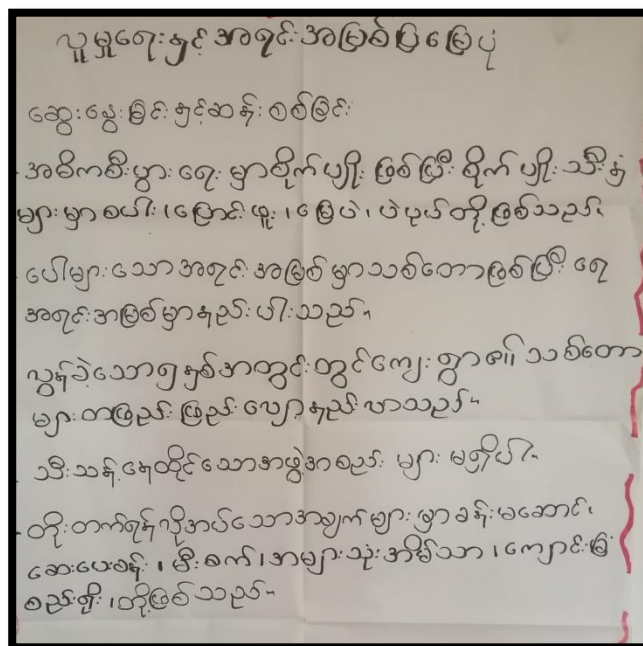 လူမှုရေးနှင့်အရင်းအမြစ်ပြမြေပုံ
ဆွေးနွေးခြင်းနှင့်ဆန်းစစ်ခြင်း
- အဓိကစီးပွားရေးမှာစိုက်ပျိုးဖြစ်ပြီးစိုက်ပျိုးသီးနှံ
များမှာစပါး၊ပြောင်းဖူး၊မြေပဲ၊ပဲပုပ်တို့ဖြစ်သည်။
- ပေါများသောအရင်းအမြစ်မှာသစ်တောဖြစ်ပြီးရေ
အရင်းအမြစ်မှာနည်းပါးသည်။
လွန်ခဲ့သော၅နှစ်အတွင်းတွင်ကျေးရွာ၏သစ်တော
များတဖြည်းဖြည်းလျော့နည်းလာသည်။
သီးသန့်နေထိုင်သောအဖွဲ့အစည်းများမရှိပါ။
- တိုးတက်ရန်လိုအပ်သောအချက်များမှာခန်းမဆောင်၊
ဆေးပေးခန်း၊မီးစက်၊အများသုံးအိမ်သာ၊ကျောင်းခြံ
စည်းရိုး၊တို့ဖြစ်သည်။